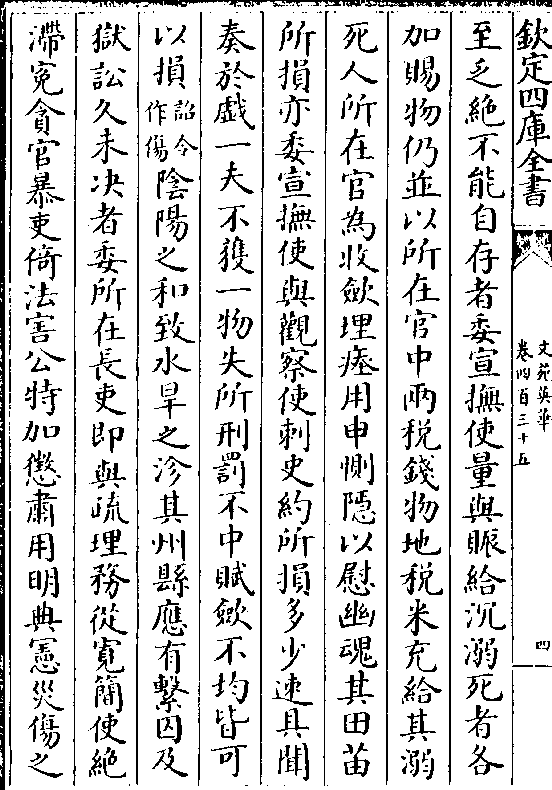 欽定四庫全書
文苑英華
卷四百三十五
四
至乏絶不能自存者委宣撫使量與賑給沉溺死者各
加賜物仍並以所在官中兩税錢物地税米充給其溺
死人所在官為收斂埋瘞用申惻隱以慰幽魂其田苗
所損亦委宣撫使與觀察使刺史約所損多少速具聞
奏於戲一夫不獲一物失所刑罰不中賦斂不均皆可
以損詔令作傷陰陽之和致水旱之沴其州縣應有繫囚及
獄訟久未决者委所在長吏即與疏理務從寛簡使絶
滯寃貪官暴吏倚法害公特加懲肅用明典憲災傷之